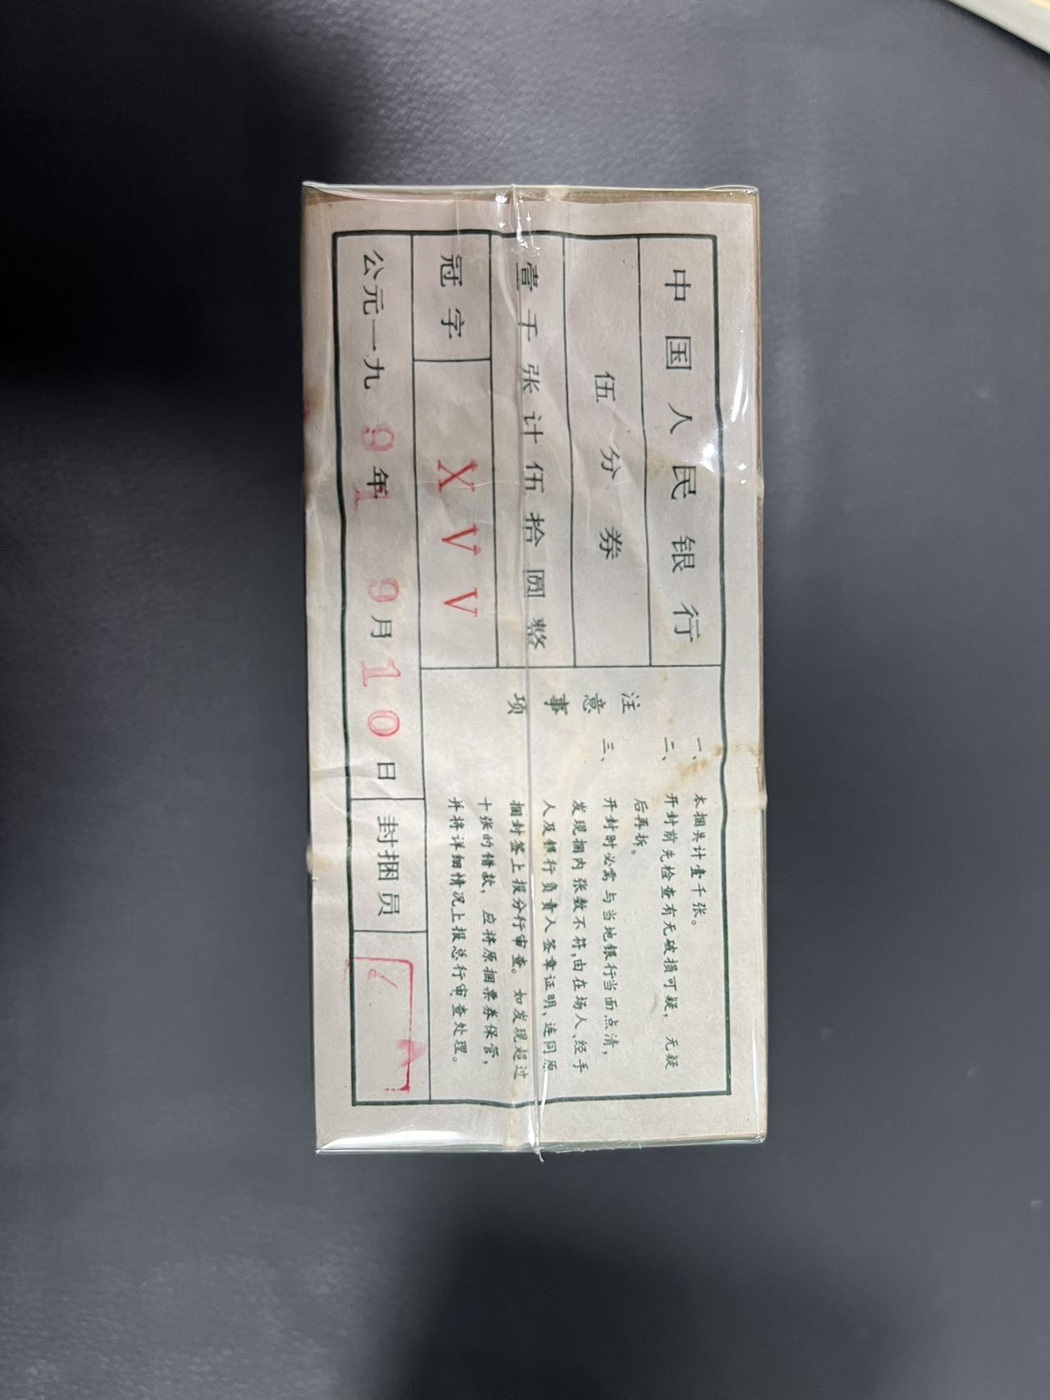 中国人民银行
伍分券
壹千张计伍拾圆整
冠字 X V V
公元一九9年1 9月10日 封捆员
注意事项
一、本捆共计壹千张。
二、开封前先检查有无破损可疑，无疑
后再拆。
三、开封时必需与当地银行当面点清，
发现捆内张数不符,由在场人、经手
人及银行负责人签章证明、连同原
捆封签上报分行审查。如发现超过
十张的错款，应将原捆票券保管，
并将详细情况上报总行审查处理。